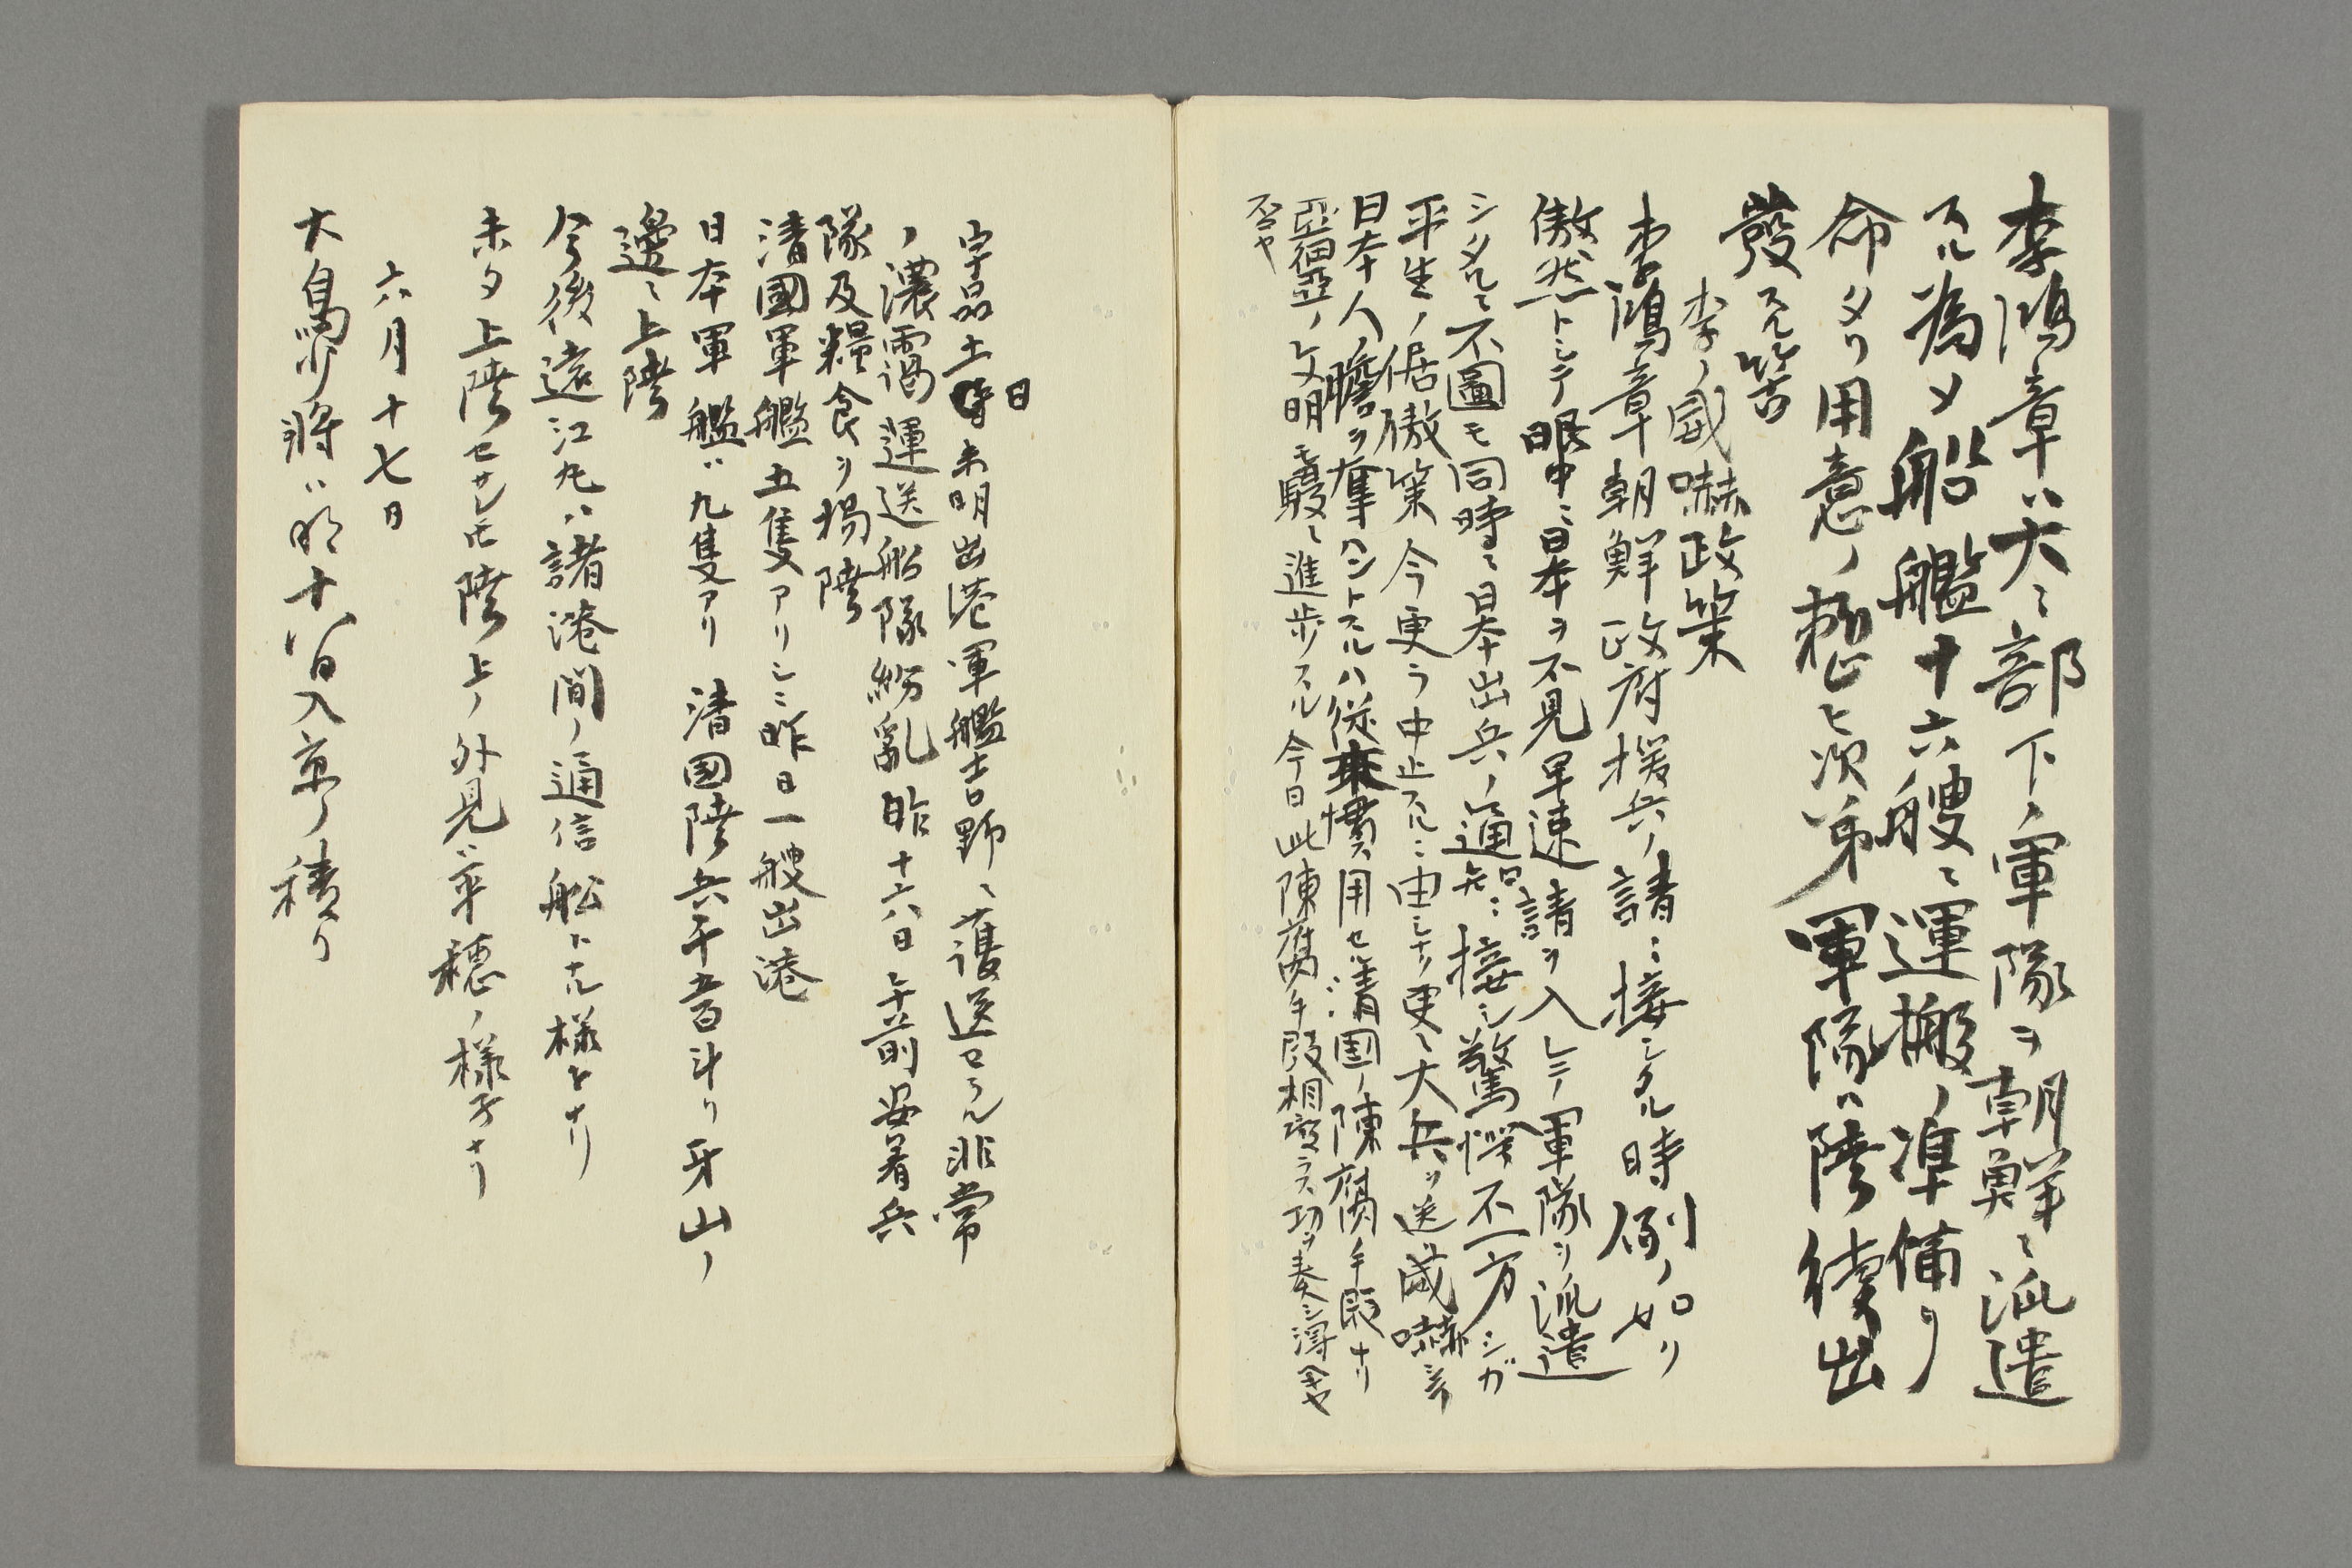 李鴻章ハ大ニ部下ノ軍隊ヲ朝鮮ニ派遣
スル為メ船艦十六艘ニ運搬ノ準備ヲ
命タリ用意ノ整ヒ次第軍隊ハ陸續出
發スル筈
李ノ威嚇政策
李鴻章朝鮮政府援兵ノ請ニ接シタル時例ノ如ク
傲然トシテ眼中ニ日本ヲ不見早速請ヲ入レテ軍隊ヲ派遣
シタルニ不圖モ同時ニ日本出兵ノ通知ニ接シ驚愕不一方シガ
平生ノ倨傲策今更ラ中止スルニ由シナク更ニ大兵ヲ送リ威嚇シテ
日本人ノ膽ヲ奪ハントスルハ從来慣用セル清国ノ陳腐手段ナリ
亞細亞ノ文明モ駸々進歩スル今日此陳腐手段相変ラス功ヲ奏シ得ヘキヤ
否ヤ
日
字品土未明出港軍艦吉野ニ護送セラル非常
ノ濃霧運送船隊紛乱昨十六日午前安着兵
隊及糧食ヲ揚陸
清國軍艦五隻アリシニ昨日一艘出港
日本軍艦ハ九隻アリ 清国陸兵千五百斗リ牙山ノ
邊ニ上陸
今後遠江丸ハ諸港間ノ通信船トナル様ナリ
未タ上陸セサレ𪜈陸上ノ外見ハ平穏ノ様子ナリ
六月十七日
大島少将ハ明十八日入京ノ積リ